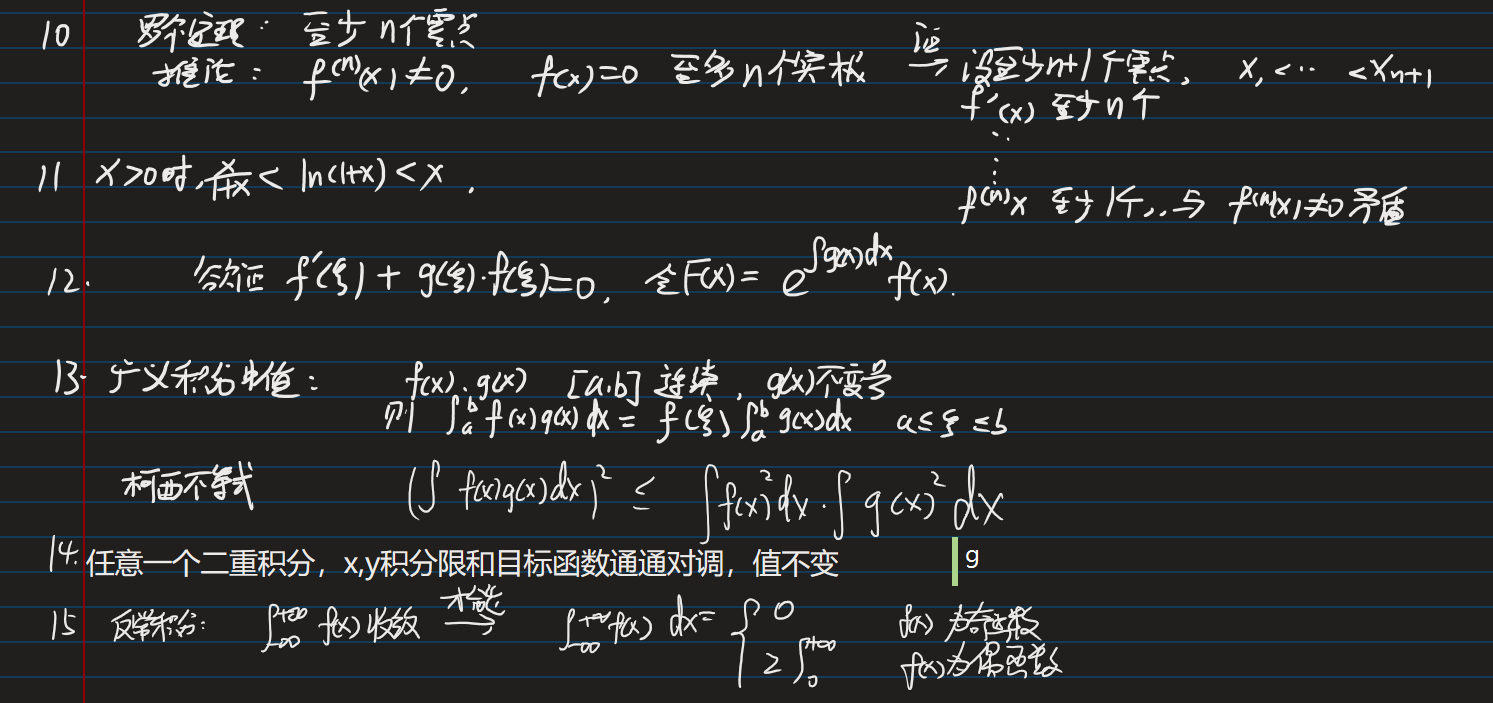 10 罗尔定理: 至少 n个零点
推论: f⁽ⁿ⁾(x)≠0, f(x)=0 至多n个实根 证→ 设至少n+1个零点, x₁<…<xₙ₊₁
f'(x) 至少n个
⋮
f⁽ⁿ⁾x 至少1个,..与 f⁽ⁿ⁾(x)≠0 矛盾
11 x>0时, x/(1+x) < ln(1+x) < x .
12. 欲证 f'(ξ) + g(ξ)·f(ξ)=0, 令F(x)= e^{∫g(x)dx} f(x).
13. 广义积分中值: f(x).g(x) [a.b] 连续, g(x)不变号
则 ∫ₐᵇ f(x)g(x)dx = f(ξ)∫ₐᵇ g(x)dx a≤ξ≤b
柯西不等式 (∫ f(x)g(x)dx)² ≤ ∫f(x)²dx·∫g(x)²dx
14. 任意一个二重积分，x,y积分限和目标函数通通对调，值不变 g
15 反常积分: ∫₋∞⁺∞ f(x)收敛 才能→ ∫₋∞⁺∞ f(x) dx= { 0 f(x) 为奇函数
2∫₀⁺∞ f(x)为偶函数